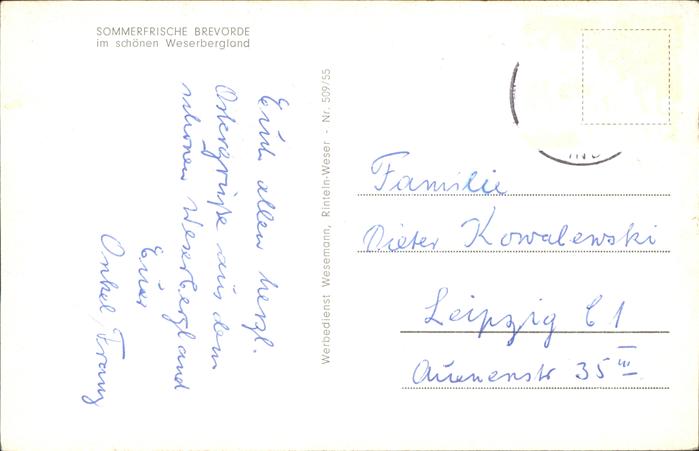 SOMMERFRISCHE BREVÖRDE
im schönen Weserbergland
Euch allen herzl.
Ostergrüße aus dem
schönen Weserbergland
Euer
Onkel Franz
Werbedienst Wesemann, Rinteln-Weser - Nr. 509/55
Familie
Dieter Kowalewski
Leipzig C 1
Auenstr 35 III